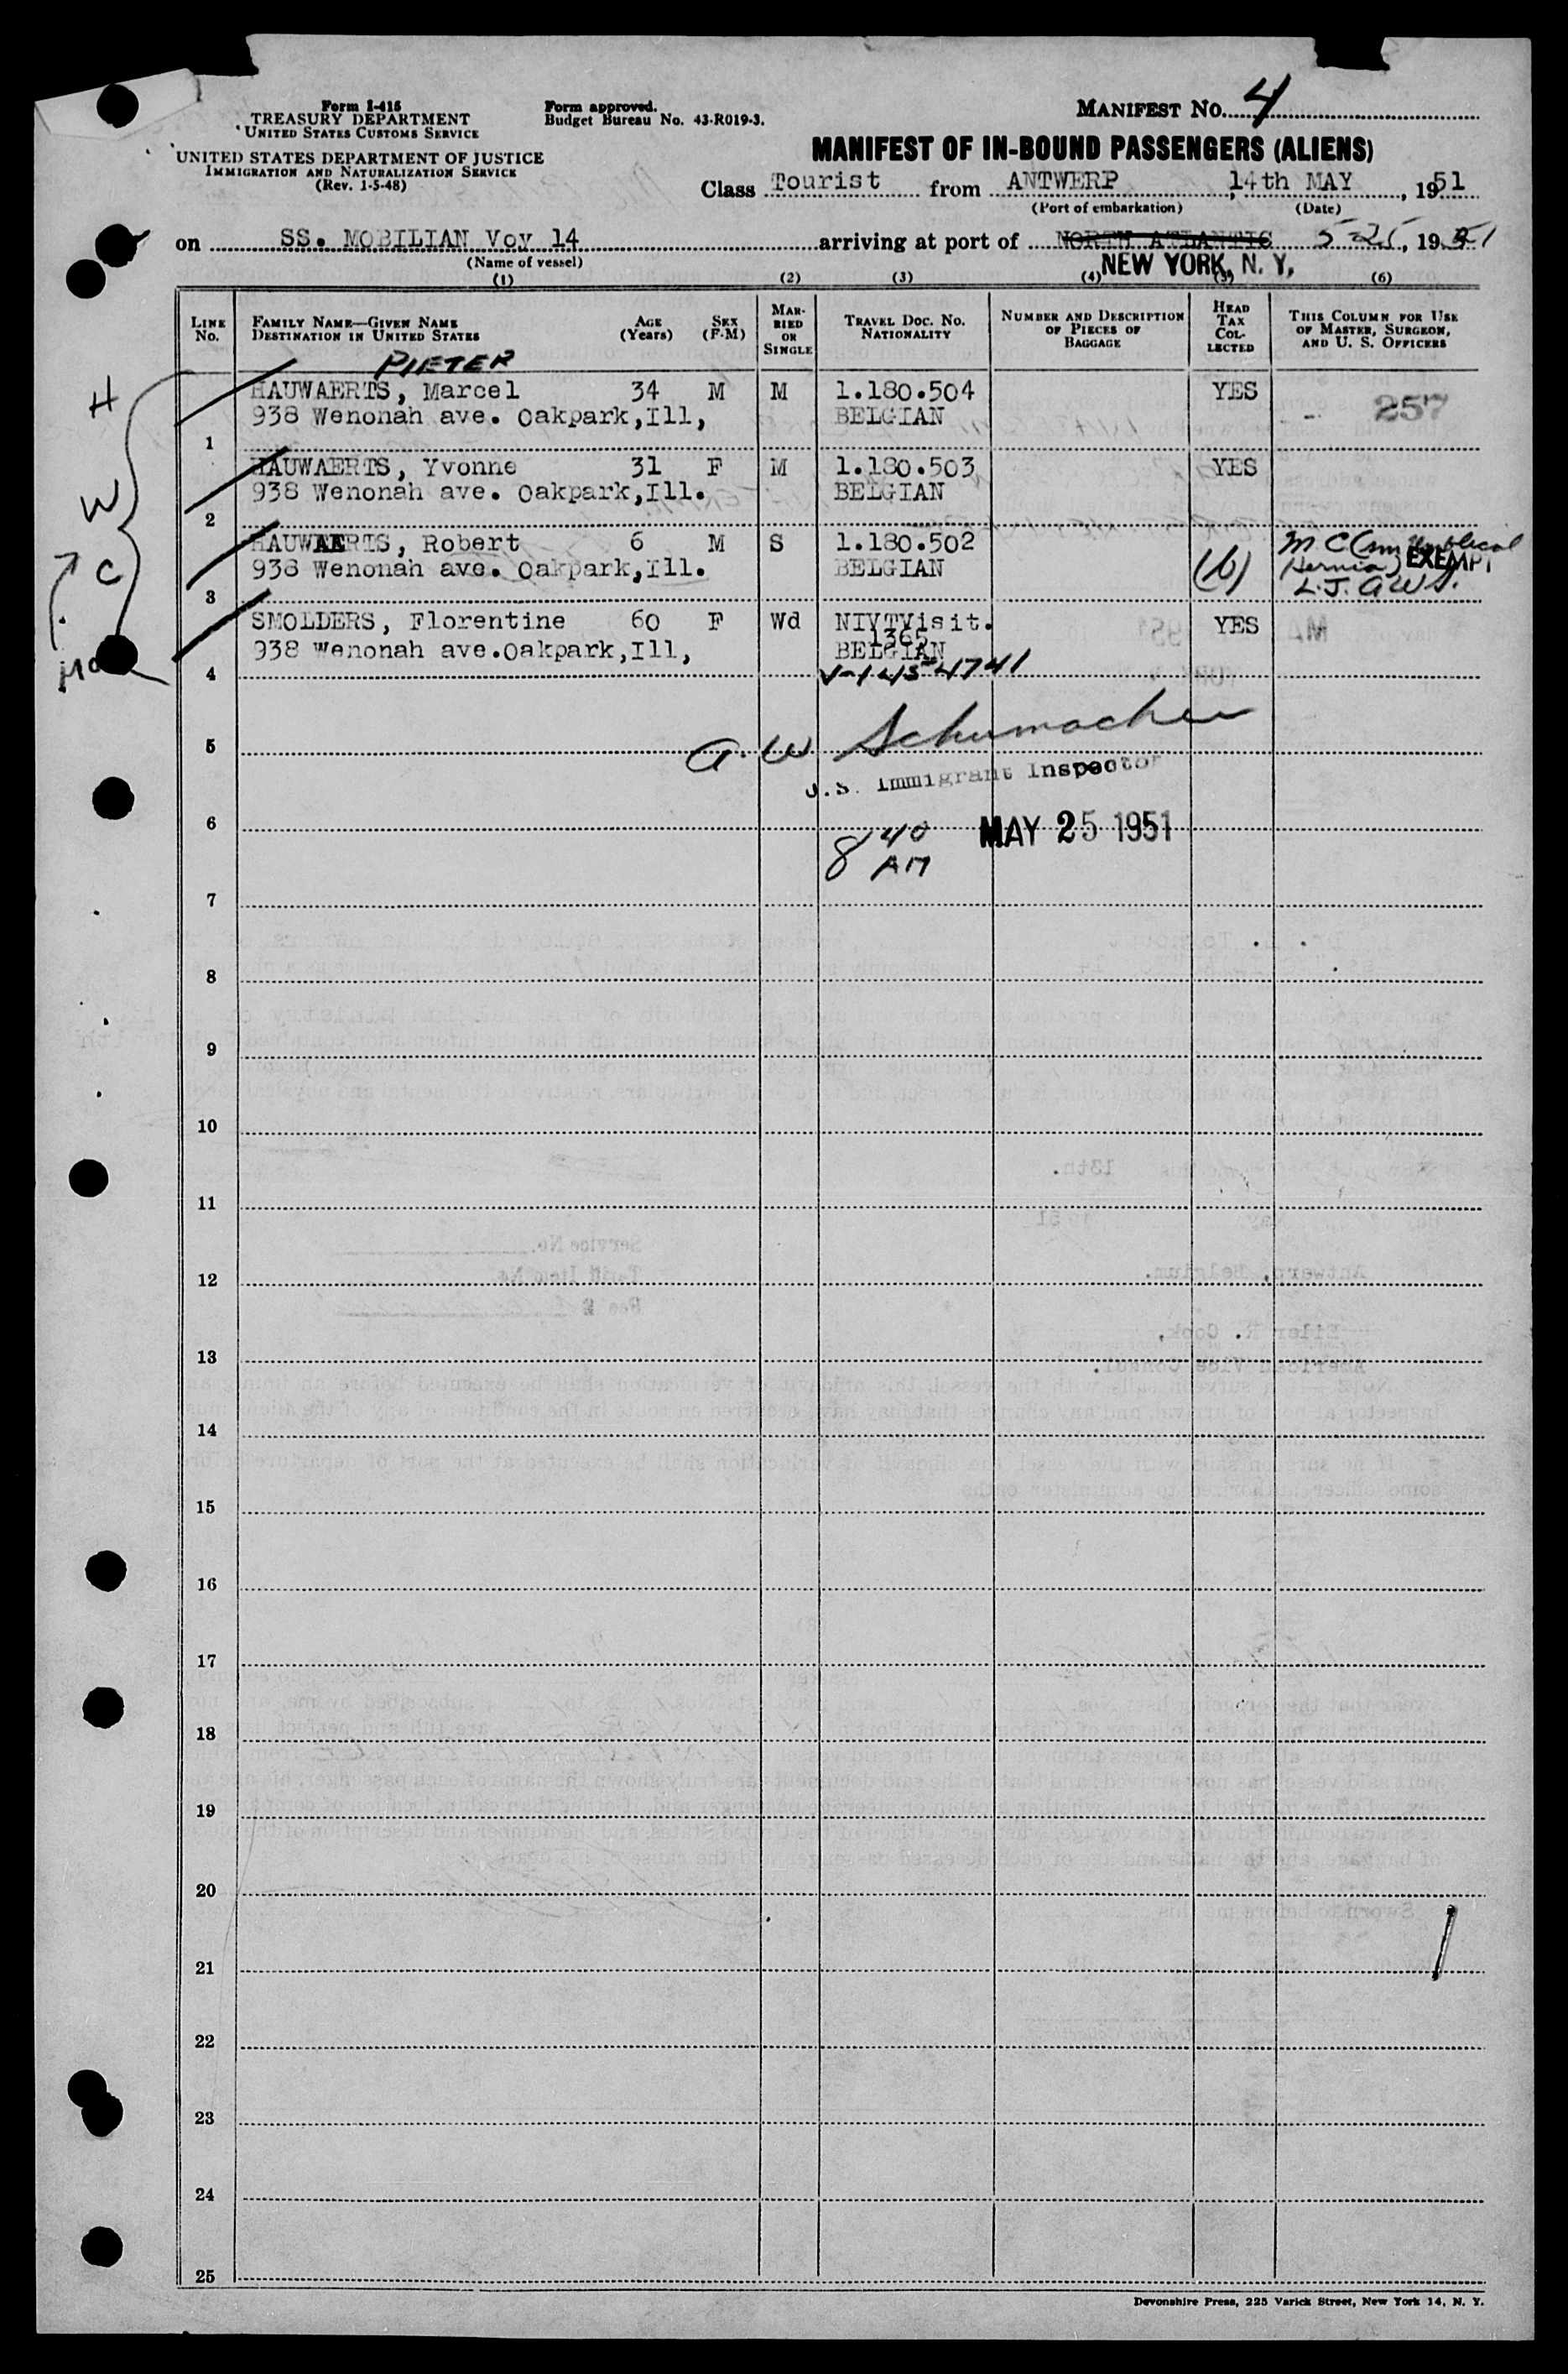 Form I-415
TREASURY DEPARTMENT
UNITED STATES CUSTOMS SERVICE
UNITED STATES DEPARTMENT OF JUSTICE
IMMIGRATION AND NATURALIZATION SERVICE
(Rev. 1-5-48)
Form approved.
Budget Bureau No. 43-R019-3.
MANIFEST NO. 4
MANIFEST OF IN-BOUND PASSENGERS (ALIENS)
Class Tourist from ANTWERP, 14th MAY, 1951
(Port of embarkation) (Date)
on SS. MOBILIAN Voy 14 arriving at port of NORTH ATLANTIC 5-25, 1951
(Name of vessel) NEW YORK, N. Y.
(1) (2) (3) (4) (5) (6)
LINE No. FAMILY NAME—GIVEN NAME DESTINATION IN UNITED STATES AGE (Years) SEX (F-M) MARRIED OR SINGLE TRAVEL DOC. NO. NATIONALITY NUMBER AND DESCRIPTION OF PIECES OF BAGGAGE HEAD TAX COLLECTED THIS COLUMN FOR USE OF MASTER, SURGEON, AND U. S. OFFICERS
PIETER
H HAUWAERTS, Marcel 34 M M 1.180.504 YES
938 Wenonah ave. Oakpark,Ill, BELGIAN 257
1
HAUWAERTS, Yvonne 31 F M 1.180.503 YES
W 938 Wenonah ave. Oakpark,Ill. BELGIAN
2
HAUWAERTS, Robert 6 M S 1.180.502 M C (Umbilical
C 938 Wenonah ave. Oakpark,Ill. BELGIAN (16) Hernia) EXEMPT
3 L.J. AWS.
SMOLDERS, Florentine 60 F Wd NIVTVisit. YES
1365
938 Wenonah ave.Oakpark,Ill, BELGIAN
4 V-1454741
5 A. W Schumacher
U.S. Immigrant Inspector
6 8 40 AM MAY 25 1951
7
8
9
10
11
12
13
14
15
16
17
18
19
20
21
22
23
24
25
Devonshire Press, 225 Varick Street, New York 14, N. Y.